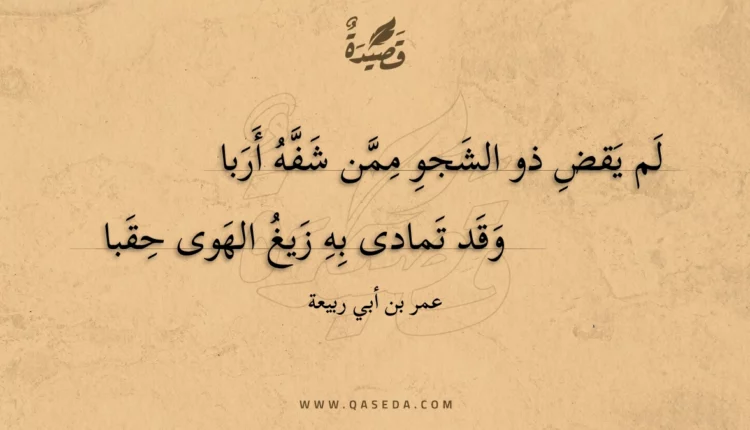 قَصِيدَةٌ
لَم يَقضِ ذو الشَجوِ مِمَّن شَفَّهُ أَرَبا
وَقَد تَمادى بِهِ زَيغُ الهَوى حِقَبا
عمر بن أبي ربيعة
WWW.QASEDA.COM